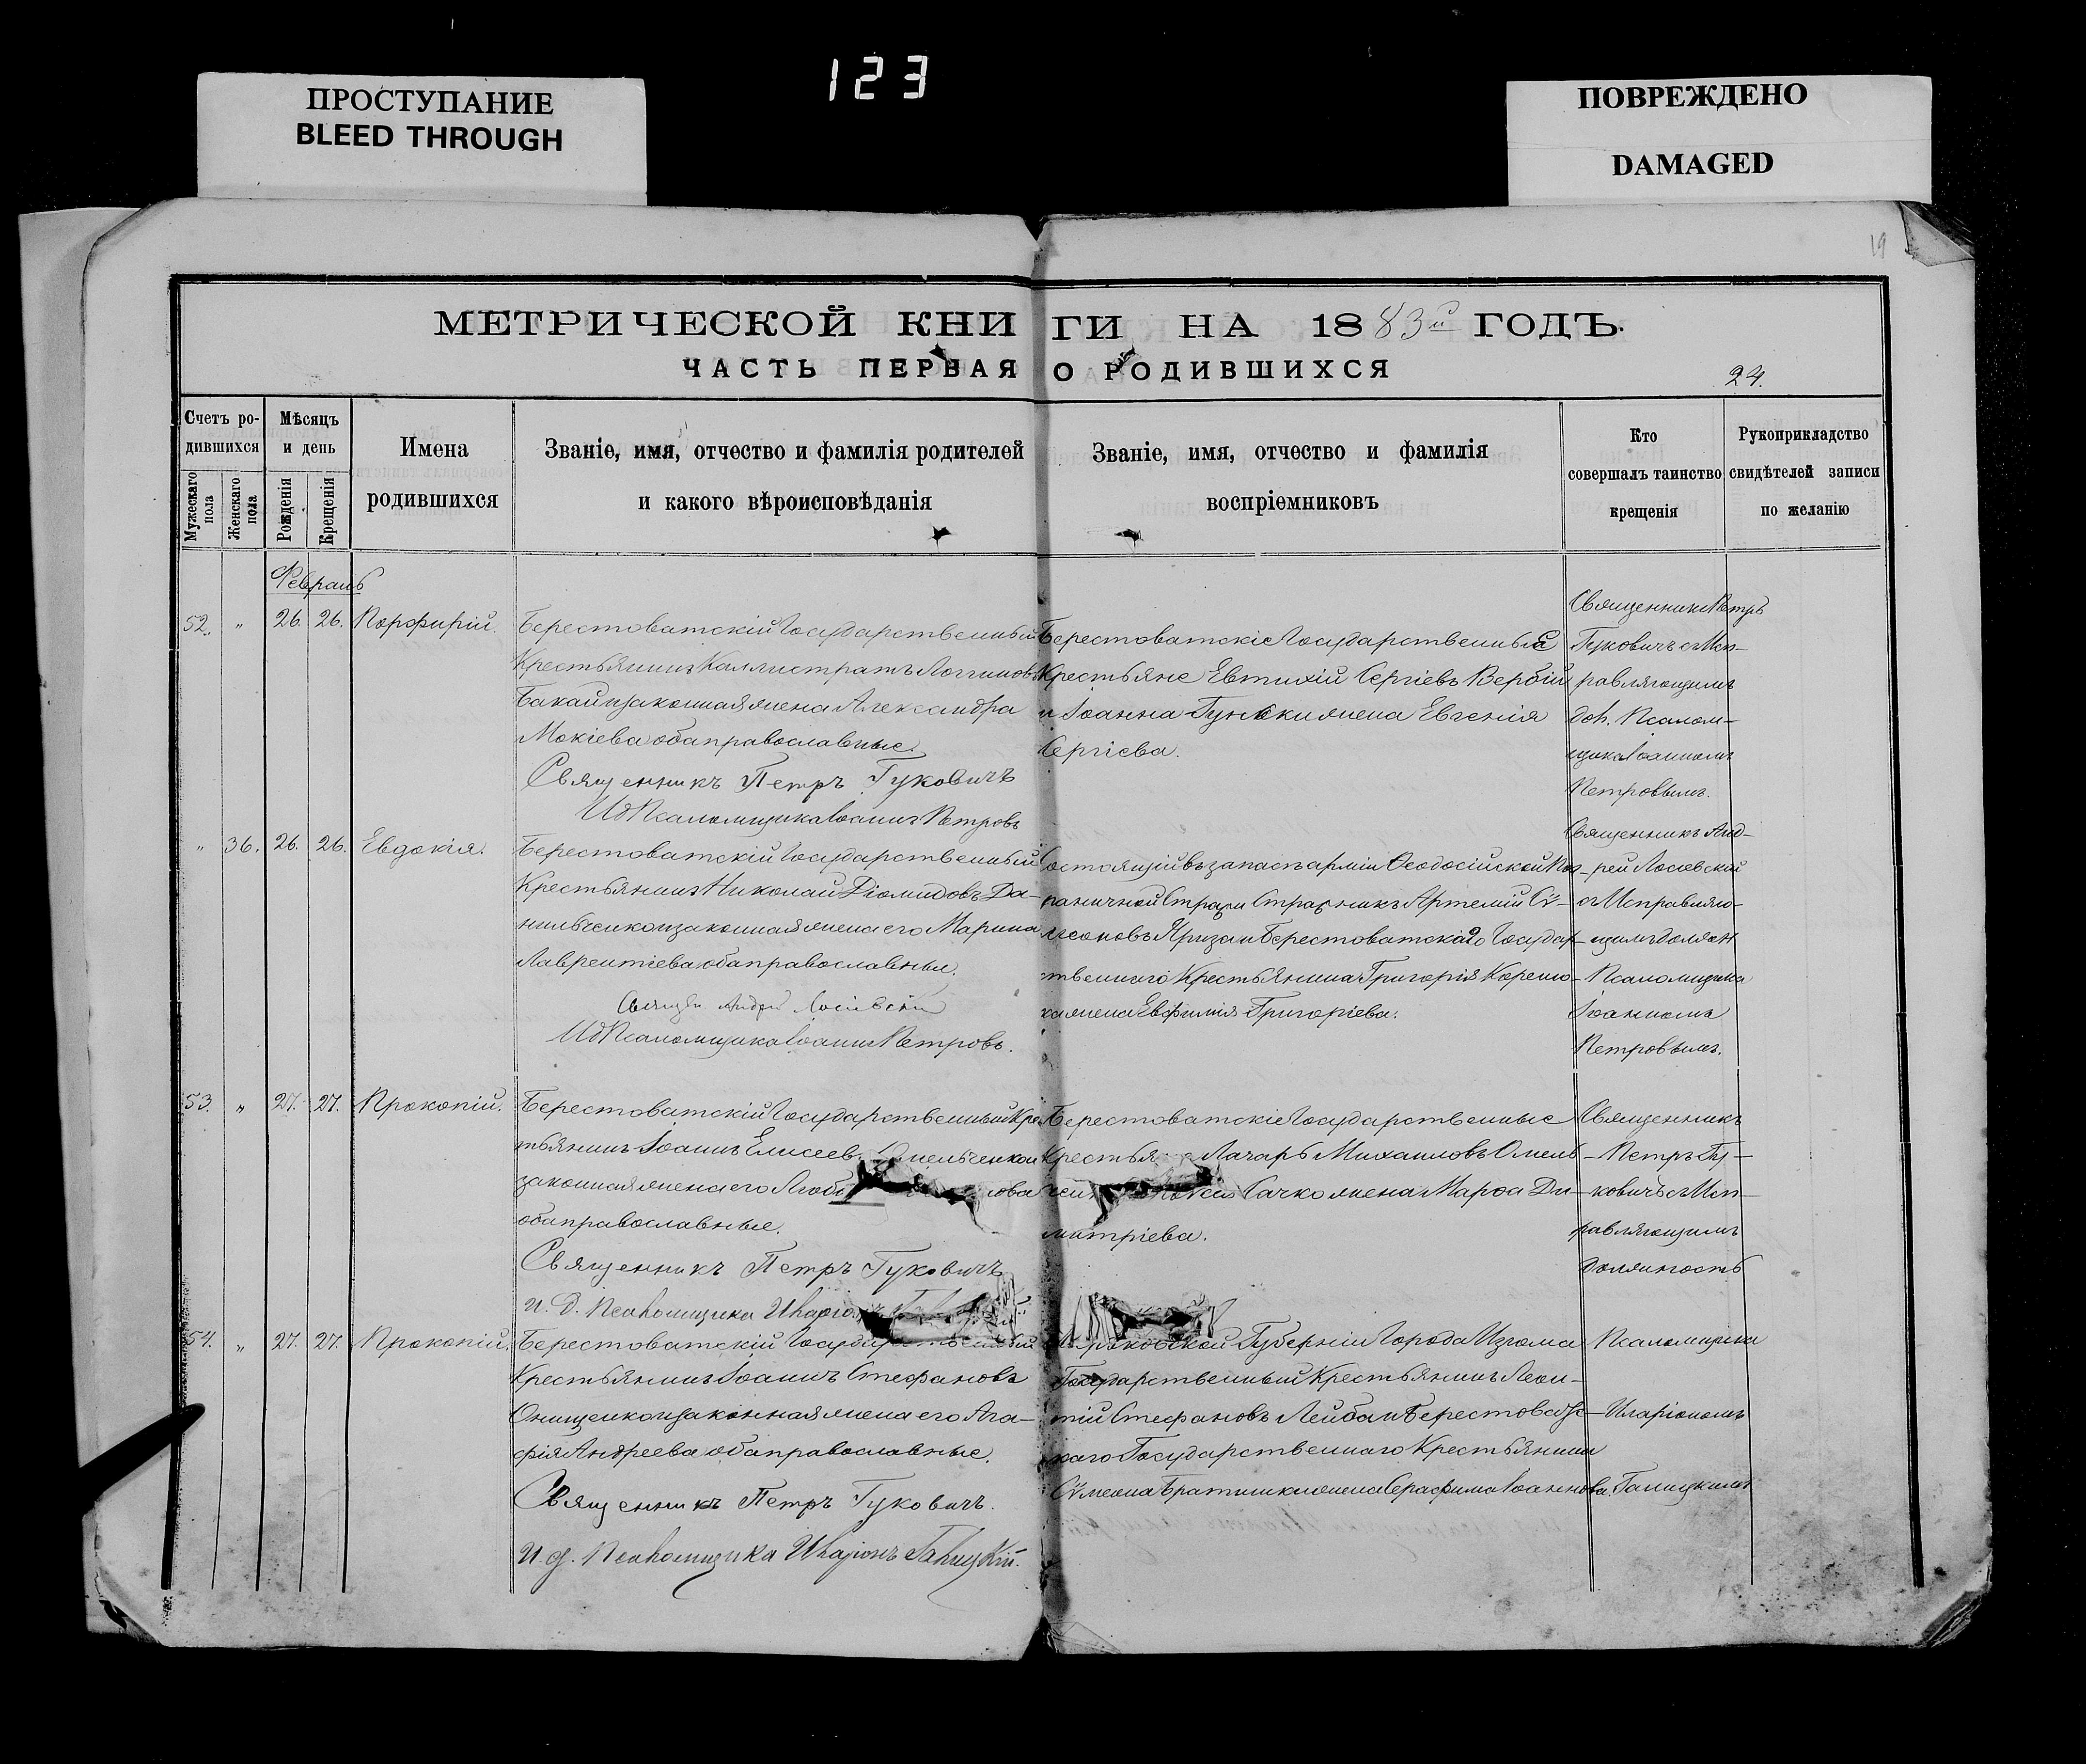 123
ПРОСТУПАНИЕ
BLEED THROUGH
ПОВРЕЖДЕНО
DAMAGED
19
МЕТРИЧЕСКОЙ КНИГИ НА 1883й ГОДЪ.
ЧАСТЬ ПЕРВАЯ О РОДИВШИХСЯ
24.
Счетъ родившихся
Мужескаго пола
Женскаго пола
Мѣсяцъ и день
Рожденія
Крещенія
Имена родившихся
Званіе, имя, отчество и фамилія родителей
и какого вѣроисповѣданія
Званіе, имя, отчество и фамилія
воспріемниковъ
Кто
совершалъ таинство
крещенія
Рукоприкладство
свидѣтелей записи
по желанію
Февраль
52. " 26. 26. Порфирій.
Берестоватскій Государственный
Крестьянинъ Каллистратъ Логгиновъ
Бакай и законная жена Александра
Мокіева оба православные.
Священникъ Петръ Гуковичъ
И д Псаломщика Іоаннъ Петровъ
Берестоватскіе Государственные
Крестьяне Евтихій Сергіевъ Вербій
и Іоанна Гуньки жена Евгенія
Сергіева.
Священникъ Петръ
Гуковичъ съ Исп-
равляющимъ
дол. Псалом-
щика Іоанномъ
Петровымъ.
" 36. 26. 26. Евдокія.
Берестоватскій Государственный
Крестьянинъ Николай Діомидовъ Да-
нильченко и законная жена его Марина
Лаврентіева оба православные.
Священ. Андрей Лосіевскій
И д Псаломщика Іоаннъ Петровъ.
Состоящій въ запасѣ арміи Ѳеодосійской Пог-
раничной Стражи Стражникъ Артемій Сѵ-
меоновъ и Берестоватскаго Государ-
ственнаго Крестьянина Григорія
жена Евфимія Григоріева.
Священникъ Анд-
рей Лосіевскій
съ Исправляю-
щимъ должн
Псаломщика
Іоанномъ
Петровымъ.
53. " 27. 27. Прокопій.
Берестоватскій Государственный Крес
тьянинъ Іоаннъ Елисеев Омельченко и
законная жена его Люб ова
оба православные.
Священникъ Петръ Гуковичъ
И. д. Псаломщика Иларіо
Берестоватскіе Государственные
Крестья Лазарь Михаиловъ Омель-
чен Сачко жена Марѳа Ди-
митріева.
Священникъ
Петръ Гу-
ковичъ съ Исп-
равляющимъ
должность
54. " 27. 27. Прокопій.
Берестоватскій Государственный
Крестьянинъ Іоаннъ Стефановъ
Онищенко и законная жена его Ага-
фія Андреева оба православные.
Священникъ Петръ Гуковичъ.
И. д. Псаломщика Иларіонъ Галицкій.
Харьковской Губерніи Города Изюма
Государственный Крестьянинъ Леон-
тій Стефановъ Лейба и Берестоватс-
каго Государственнаго Крестьянина
Сѵмеона Братишки жена Серафима Іоаннова.
Псаломщика
Иларіономъ
Галицкимъ